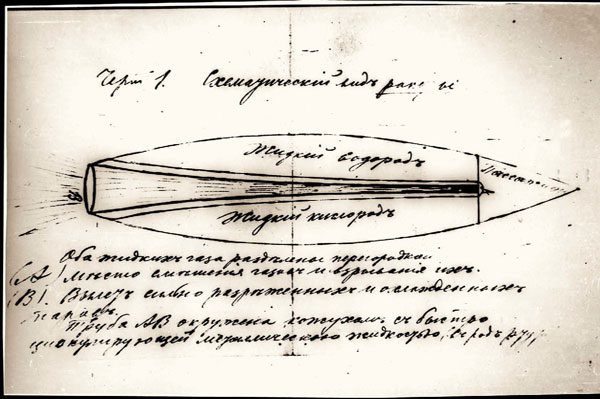 Черт 1. Схематический видъ ракеты
Жидкий водородъ
Жидкий кислородъ
В
Оба жидкихъ газа разделены перегородкой
(А) место смешения газов и взрывание ихъ.
(В). Вылетъ сильно разреженныхъ и охлажденныхъ
паровъ.
Труба АВ окружена кожухомъ съ быстро
циркулирующей металлической жидкостью,